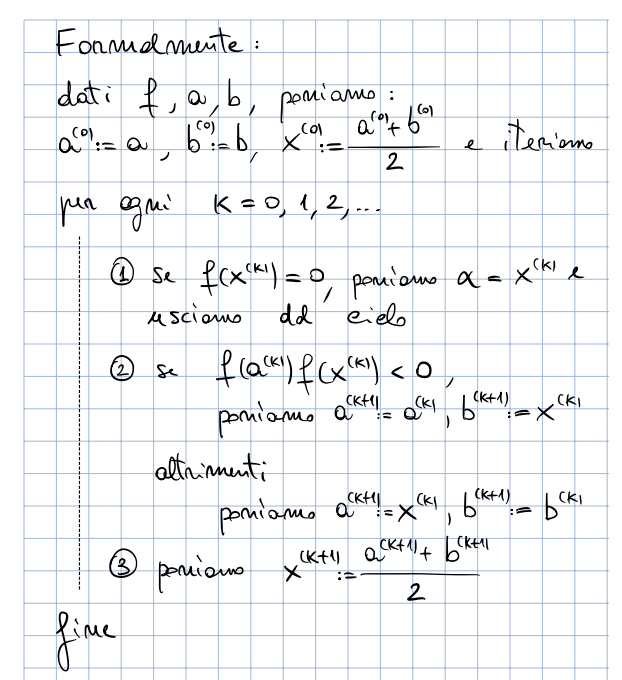 Formalmente:
dati f, a, b, poniamo:
a^(0) := a, b^(0) := b, x^(0) := (a^(0) + b^(0))/2 e iteriamo
per ogni K = 0, 1, 2, ...
① se f(x^(K)) = 0, poniamo α = x^(K) e
usciamo dal ciclo
② se f(a^(K)) f(x^(K)) < 0,
poniamo a^(K+1) := a^(K), b^(K+1) := x^(K)
altrimenti
poniamo a^(K+1) := x^(K), b^(K+1) := b^(K)
③ poniamo x^(K+1) := (a^(K+1) + b^(K+1))/2
fine